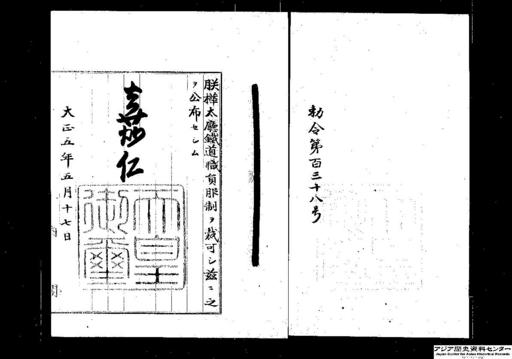 勅令第百三十八号
朕樺太廳鐵道職員服制ヲ裁可シ茲ニ之
ヲ公布セシム
嘉仁
天皇
御璽
大正五年五月十七日
アジア歴史資料センター
Japan Center for Asian Historical Records